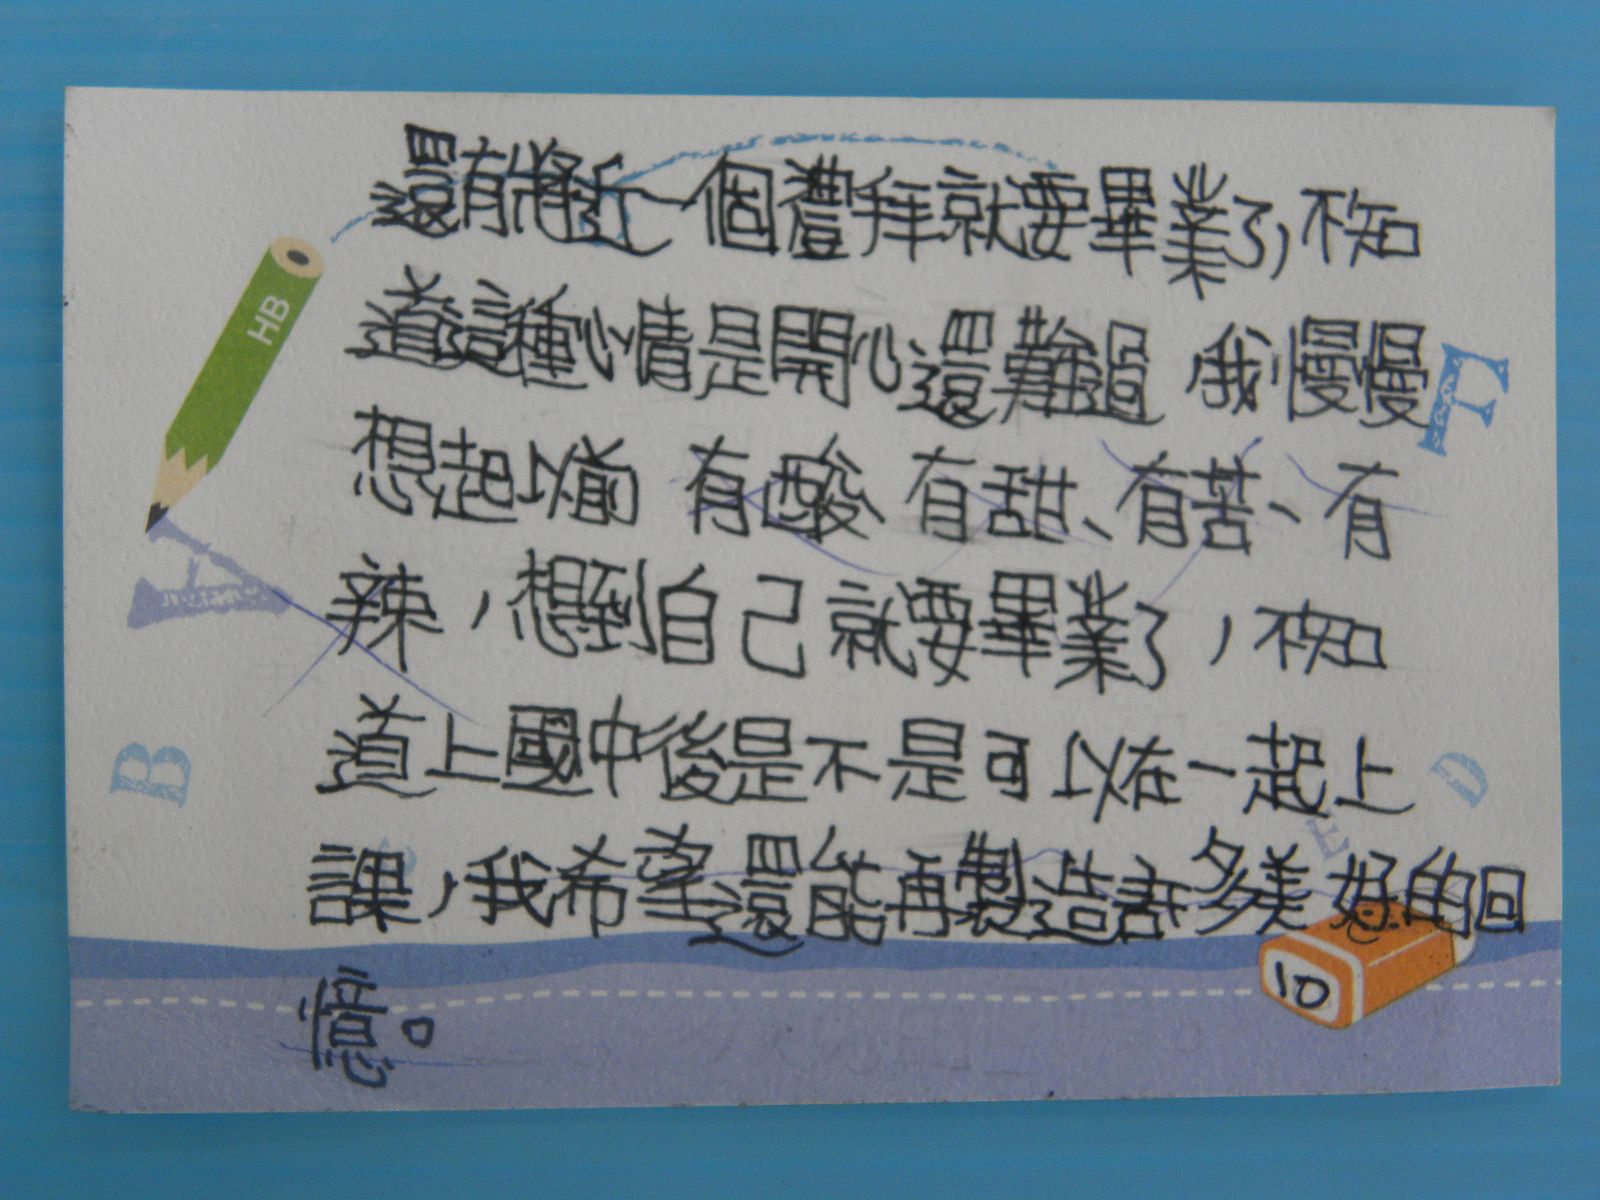 還有將近一個禮拜就要畢業了,不知
道這種心情是開心還難過 我慢慢
想起以前 有酸 有甜、有苦、有
辣,想到自己就要畢業了,不知
道上國中後是不是可以在一起上
課,我希望還能再製造許多美好的回
憶。
HB
A
B
T
D
E
10